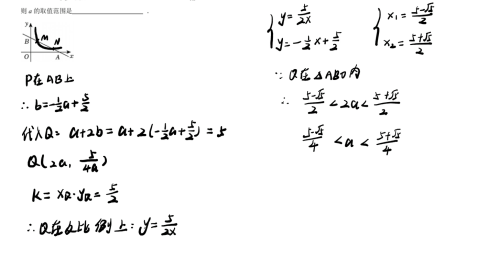 则 a 的取值范围是________.
y
B
M
N
O
A
x
P在AB上
∴ b=-1/2a+5/2
代入Q= a+2b=a+2(-1/2a+5/2)=5
Q(2a, 5/4a)
K= xQ·yQ=5/2
∴Q在反比例上:y=5/2x
{y=5/2x
y=-1/2x+5/2
{x₁=5-√5/2
x₂=5+√5/2
∵ Q在△ABO内
∴ 5-√5/2<2a<5+√5/2
5-√5/4<a<5+√5/4